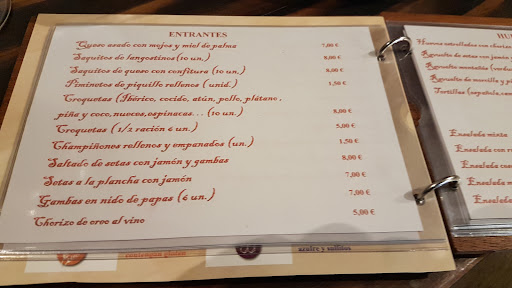 ENTRANTES
Queso asado con mojos y miel de palma 7,00 €
Saquitos de langostinos (10 un.) 8,00 €
Saquitos de queso con confitura (10 un.) 8,00 €
Piminetos de piquillo rellenos (unid.) 1,50 €
Croquetas (Ibérico, cocido, atún, pollo, plátano,
piña y coco, nueces, espinacas... (10 un.) 8,00 €
Croquetas (1/2 ración 6 un.) 5,00 €
Champiñones rellenos y empanados (un.) 1,50 €
Saltado de setas con jamón y gambas 8,00 €
Setas a la plancha con jamón 7,00 €
Gambas en nido de papas (6 un.) 7,00 €
Chorizo de oreo al vino 5,00 €
azufre y sulfitos
HU
Huevos estrellados con chorizo
Revuelto de setas con jamón
Revuelto de
Revuelto de morcilla y
Tortillas (española,
Ensalada mixta
Ensalada con
Ensalada
Ensalada
Ensalada